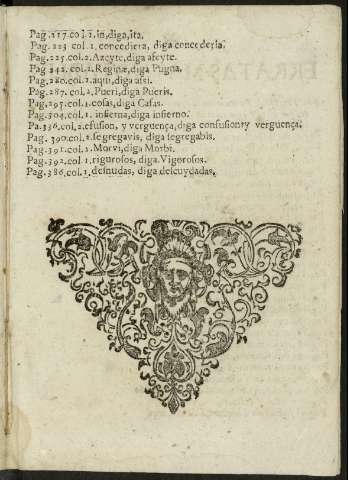 Pag. 217.col.1.in,diga,ita.
Pag. 223 col.1, concediera, diga concederla.
Pag. 225.col.2.Azeyte,diga afeyte.
Pag 242.col.2.Regina, diga Pugna.
Pag. 280.col.2.aqui, diga asi.
Pag. 287.col.2.Pueri,diga Pueris.
Pag. 295.col.1.cosas,diga Casas.
Pag. 304.col.1. infierna,diga infierno.
Pa. 336.col.2.efusion, y verguença, diga confusion y verguença.
Pag. 390.col.1.segregavis, diga segregabis.
Pag. 391.col.1.Morvi,diga Morbi.
Pag. 392.col.1.rigurosos, diga Vigorosos.
Pag. 386.col.1.desnudas, diga descuydadas.